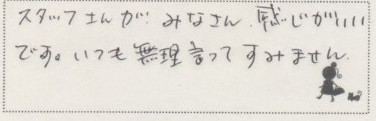 スタッフさんが、みなさん、感じがいい
です。いつも無理言ってすみません。